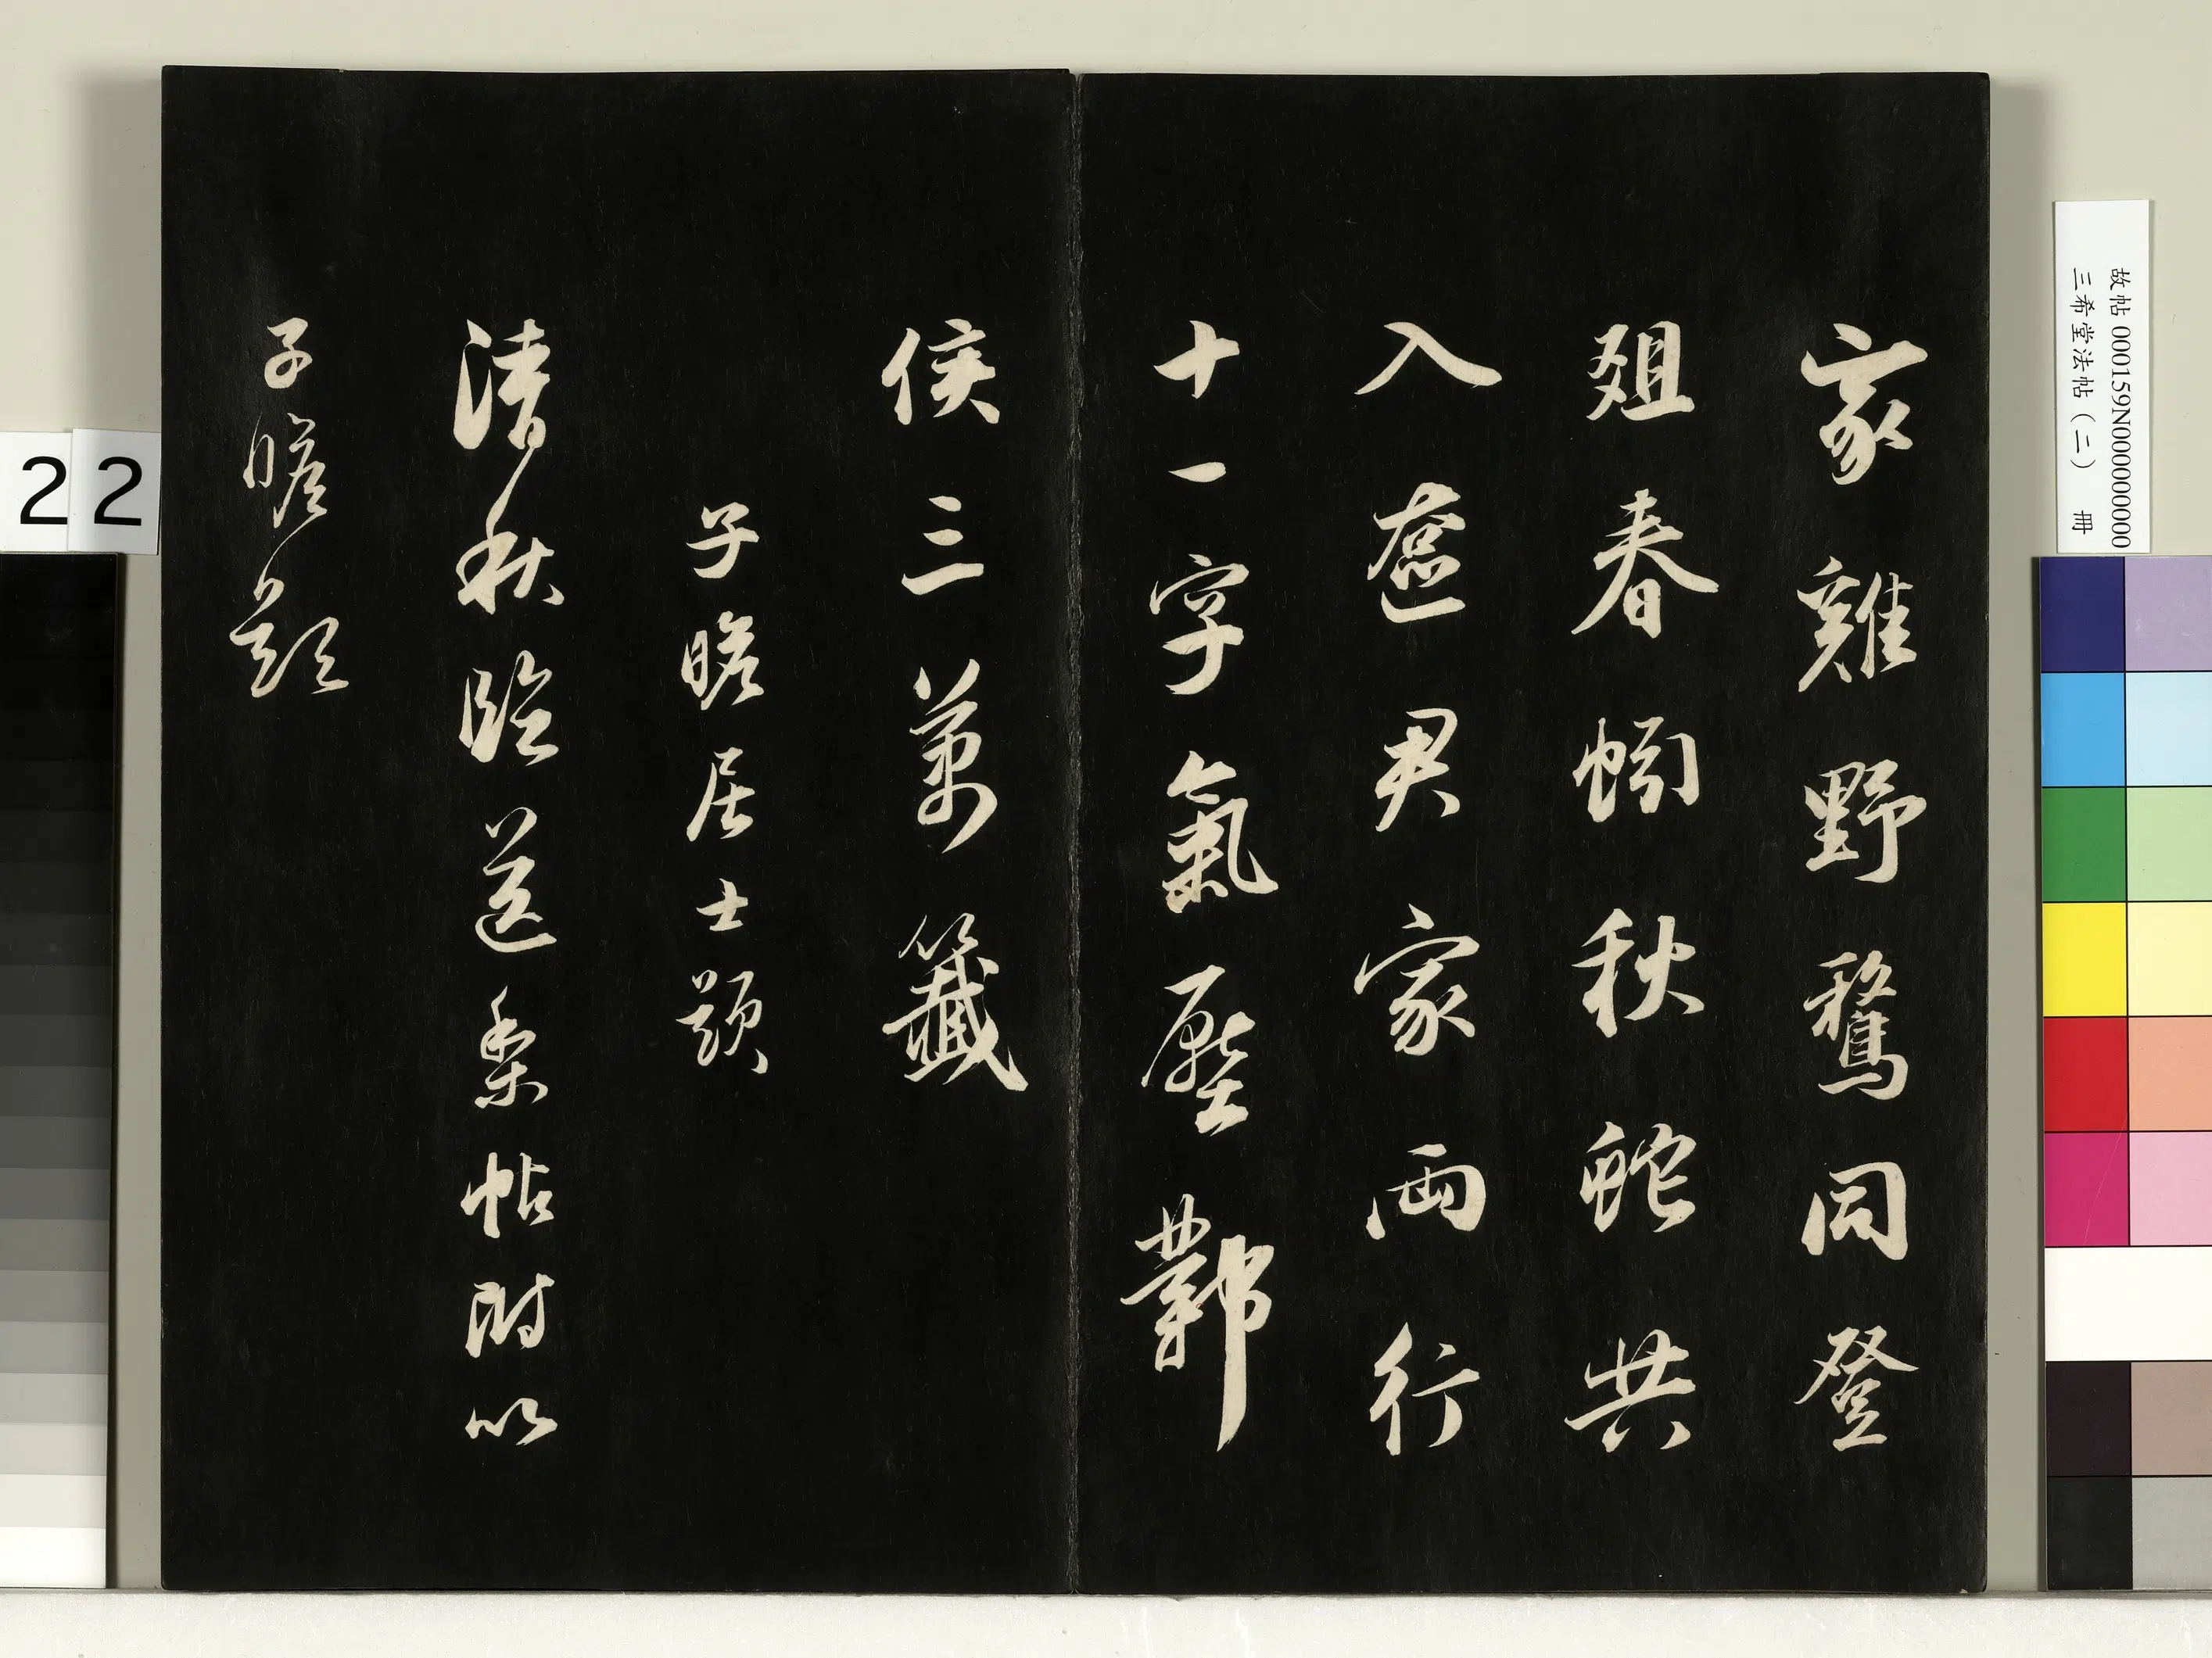 家雞野鶩同登
俎春蚓秋蛇共
入奩君家兩行
十一字氣壓鄴
侯三萬籤
子瞻居士題
清秋臨送梨帖附以
子瞻題
故帖 000159N000000000
三希堂法帖（二） 冊
22